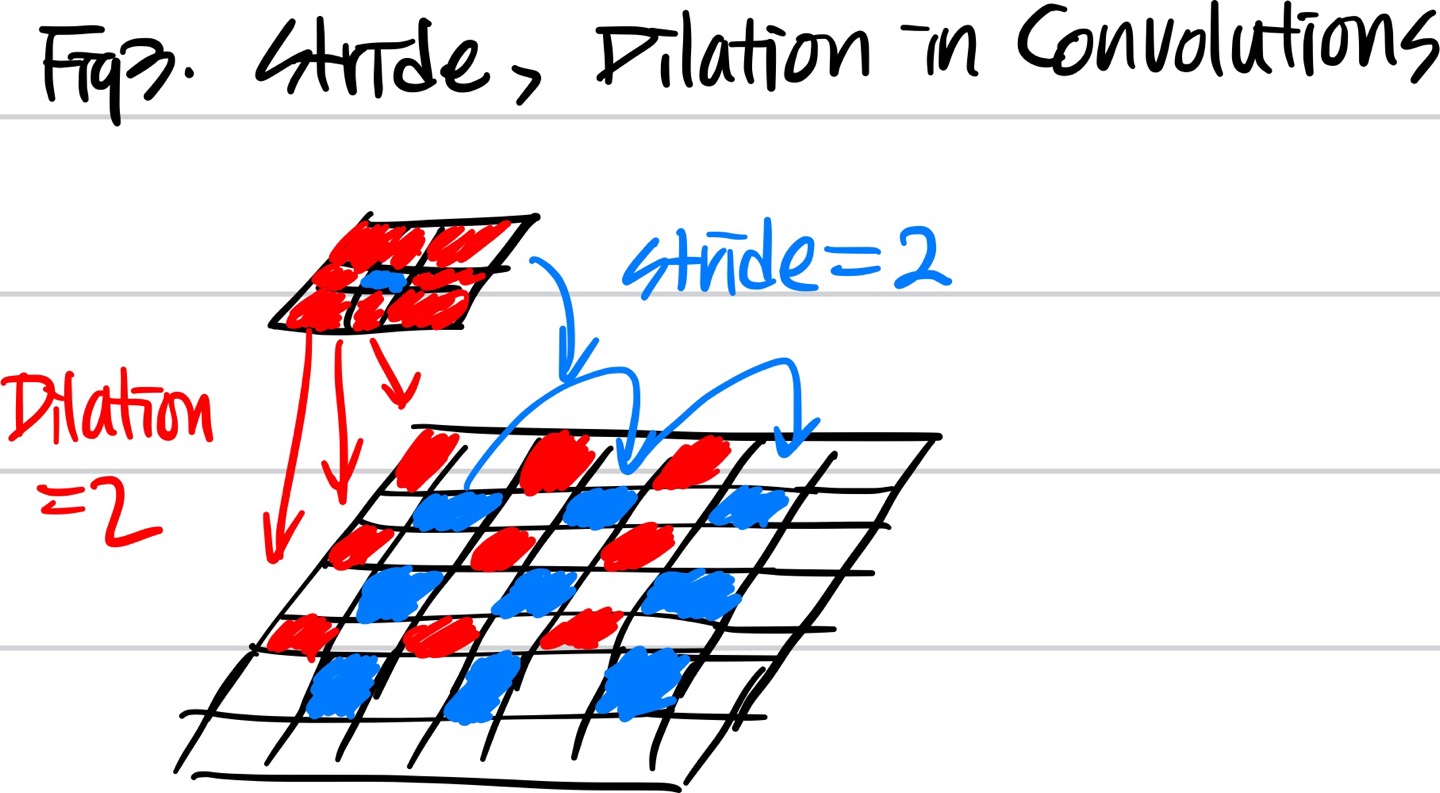 Fig3. Stride, Dilation in Convolutions
stride=2
Dilation
=2